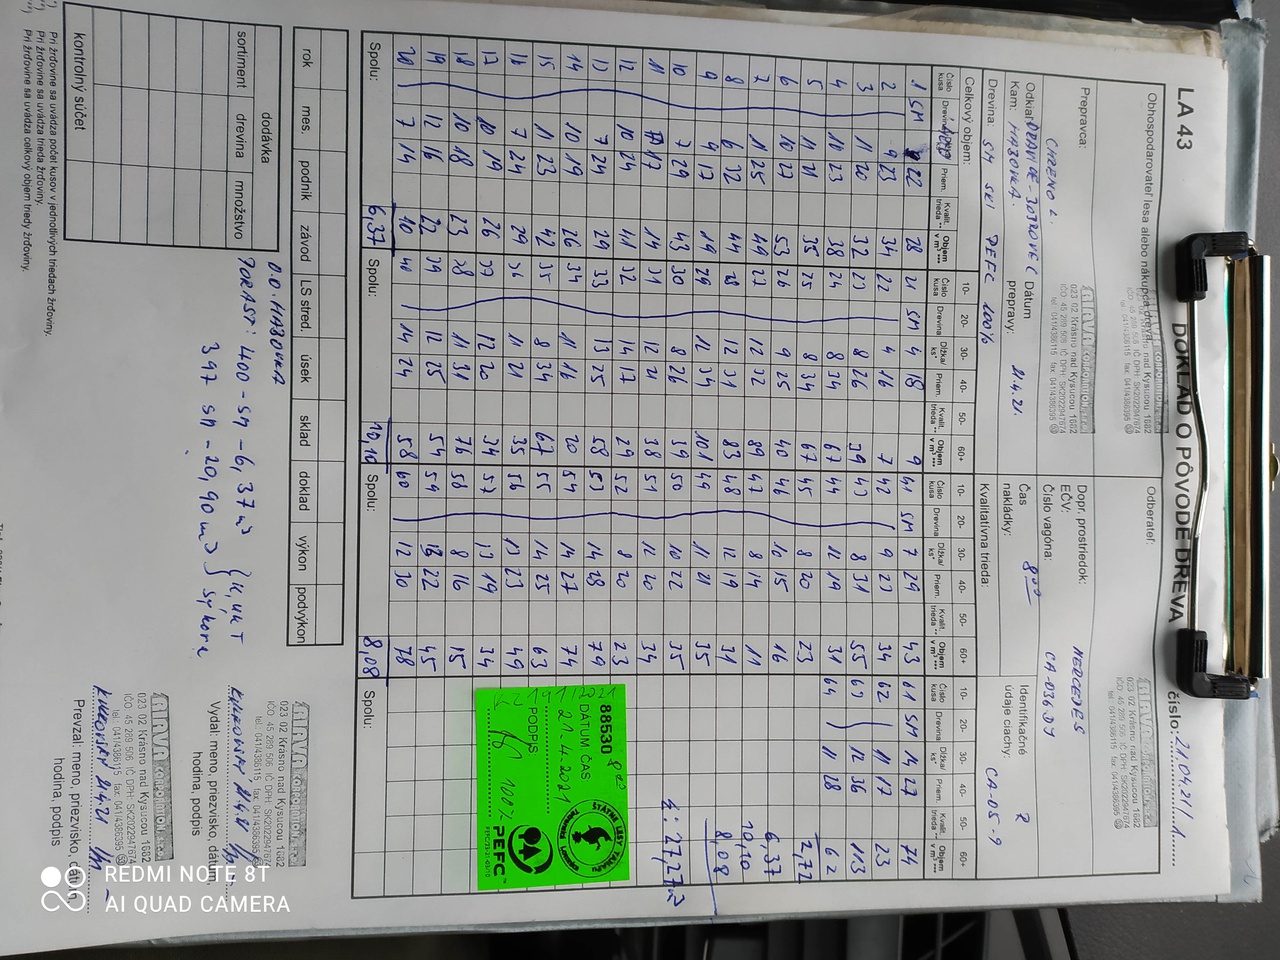 LA 43
DOKLAD O PÔVODE DREVA
číslo: 21.04.21/1.
Obhospodarovateľ lesa alebo nákupca dreva:
023 02 Krásno nad Kysucou 1682
IČO: 45 289 506 IČ DPH: SK2022947674
Odberateľ:
023 02 Krásno nad Kysucou 1682
IČO: 45 289 506 IČ DPH: SK2022947674
Prepravca:
Dopr. prostriedok: MERCEDES
EČV: CA-036DJ
Číslo vagóna:
Kam: HABOVKA
Dátum prepravy: 21.4.21.
Čas nakládky: 8 00
Identifikačné údaje ciachy: CA-05-9
Drevina: SM SKI PEFC 100%
Kvalitatívna trieda:
Celkový objem: 10- 20- 30- 40- 50- 60+ 10- 20- 30- 40- 50- 60+
Číslo kusa Drevina Dĺžka/ks* Priem. Kvalit. trieda** Objem v m³***
1 SM 22 28 21 SM 4 18 9 41 SM 7 29 43 61 SM 14 27 74
2 9 23 34 22 4 16 7 42 9 23 34 62 11 17 23
3 11 20 32 23 8 26 39 43 8 31 55 63 12 36 113
4 10 23 38 24 8 34 67 44 12 19 31 64 11 28 62
5 11 21 35 25 8 34 67 45 8 20 23
6 10 27 53 26 9 25 40 46 10 15 16
7 11 25 49 27 12 32 89 47 8 14 11
8 6 32 44 28 12 31 83 48 12 19 31
9 9 17 19 29 11 34 101 49 11 21 35
10 7 29 43 30 8 26 39 50 10 22 35
11 17 14 31 12 21 38 51 12 20 34
12 10 24 41 32 14 17 29 52 8 20 23
13 7 24 29 33 13 25 58 53 14 28 79
14 10 19 26 34 11 16 20 54 14 27 74
15 11 23 42 35 8 34 67 55 14 25 63
16 7 24 29 36 11 21 35 56 13 23 49
17 10 19 26 37 12 20 34 57 13 19 34
18 10 18 23 38 11 31 76 58 8 16 15
19 12 16 22 39 12 25 54 59 13 22 45
20 7 14 10 40 14 24 58 60 12 30 78
Spolu: 6,37 Spolu: 10,10 Spolu: 8,08 Spolu:
2,72
6,37
10,10
8,08
27,27 m³
88530
DÁTUM ČAS
21.4.2021
PODPIS
100%
ŠTÁTNE LESY TANAPu
PEFC
rok mes. podnik závod LS stred. úsek sklad doklad výkon podvýkon
dodávka
sortiment drevina množstvo
kontrolný súčet
O.O. HABOVKA
PORAST: 400 - SM - 6,37 m³
397 SM - 20,90 m³
023 02 Krásno nad Kysucou 1682
IČO: 45 289 506 IČ DPH: SK2022947674
Vydal: meno, priezvisko, dátum, hodina, podpis
023 02 Krásno nad Kysucou 1682
IČO: 45 289 506 IČ DPH: SK2022947674
Prevzal: meno, priezvisko, dátum, hodina, podpis
*) Pri žrďovine sa uvádza počet kusov v jednotlivých triedach žrďoviny.
**) Pri žrďovine sa uvádza trieda žrďoviny.
***) Pri žrďovine sa uvádza celkový objem triedy žrďoviny.
REDMI NOTE 8T
AI QUAD CAMERA